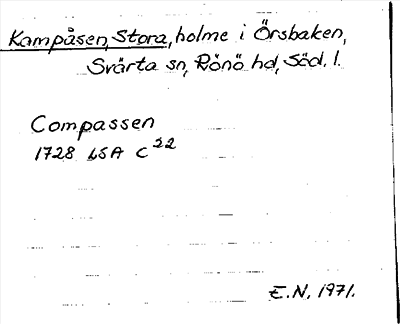 Kampåsen, Stora, holme i Örsbaken,
Svärta sn, Rönö hd, Söd. l.
Compassen
1728 LSA C²²
E.N. 1971.